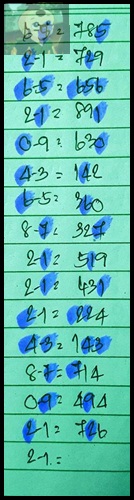 6-5= 785
2-1= 729
6-5= 656
2-1= 891
0-9= 630
4-3= 142
6-5= 360
8-7= 327
2-1= 519
2-1= 431
2-1= 224
4-3= 143
8-7= 714
0-9= 494
2-1= 726
2-1=